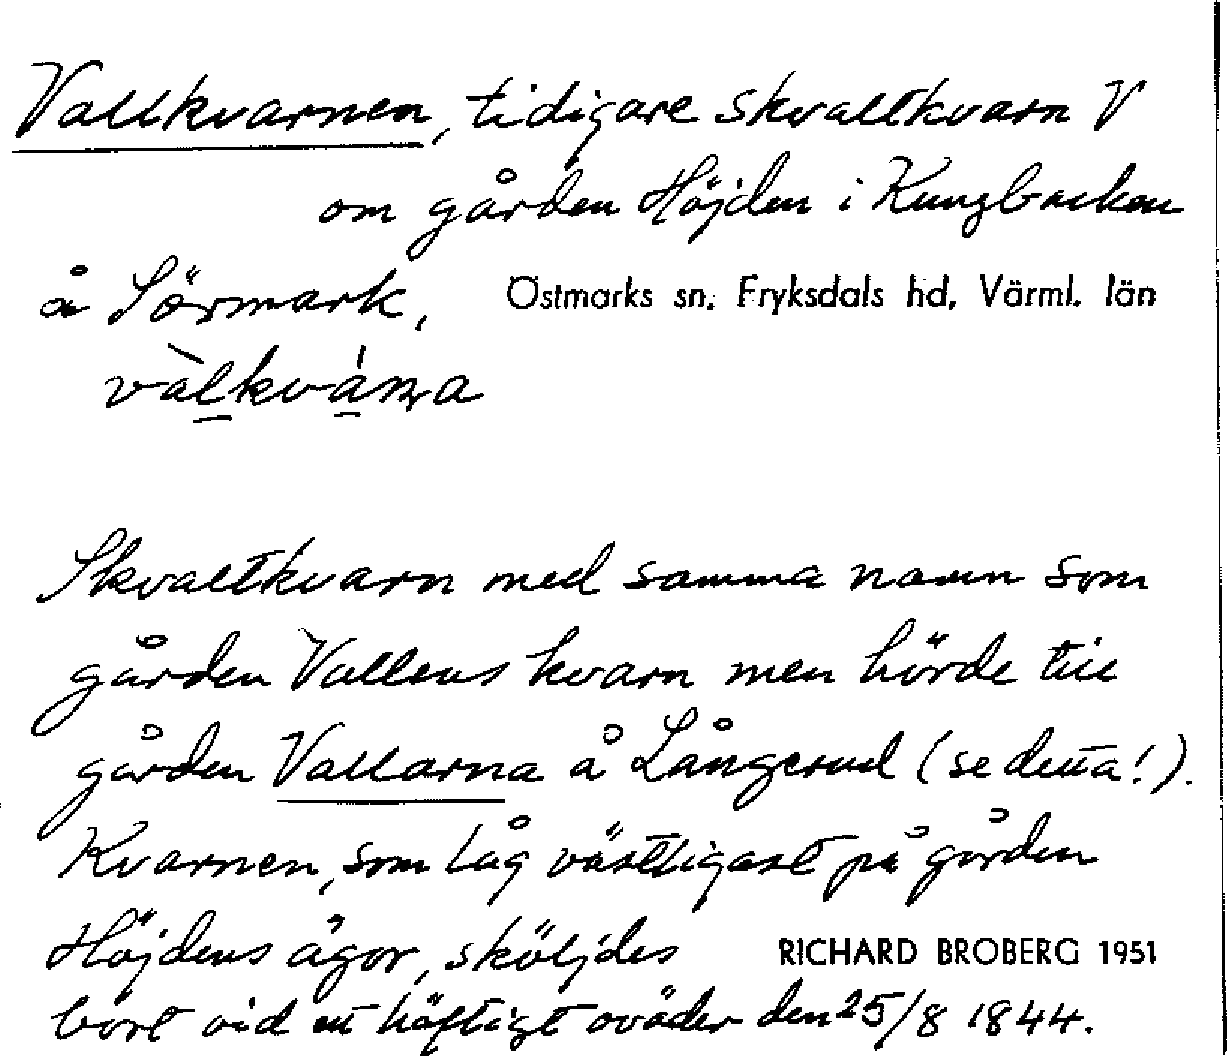 Vallkvarnen, tidigare skvaltkvarn V
om gården Höjden i Kungbacken
å Sörmark, Östmarks sn. Fryksdals hd, Värml. län
Skvaltkvarn med samma namn som
gården Vallens kvarn men hörde till
gården Vallarna å Långerud (se detta!).
Kvarnen, som låg västligast på gården
Höjdens ägor, sköljdes RICHARD BROBERG 1951
bort vid ett häftigt oväder den 25/8 1844.